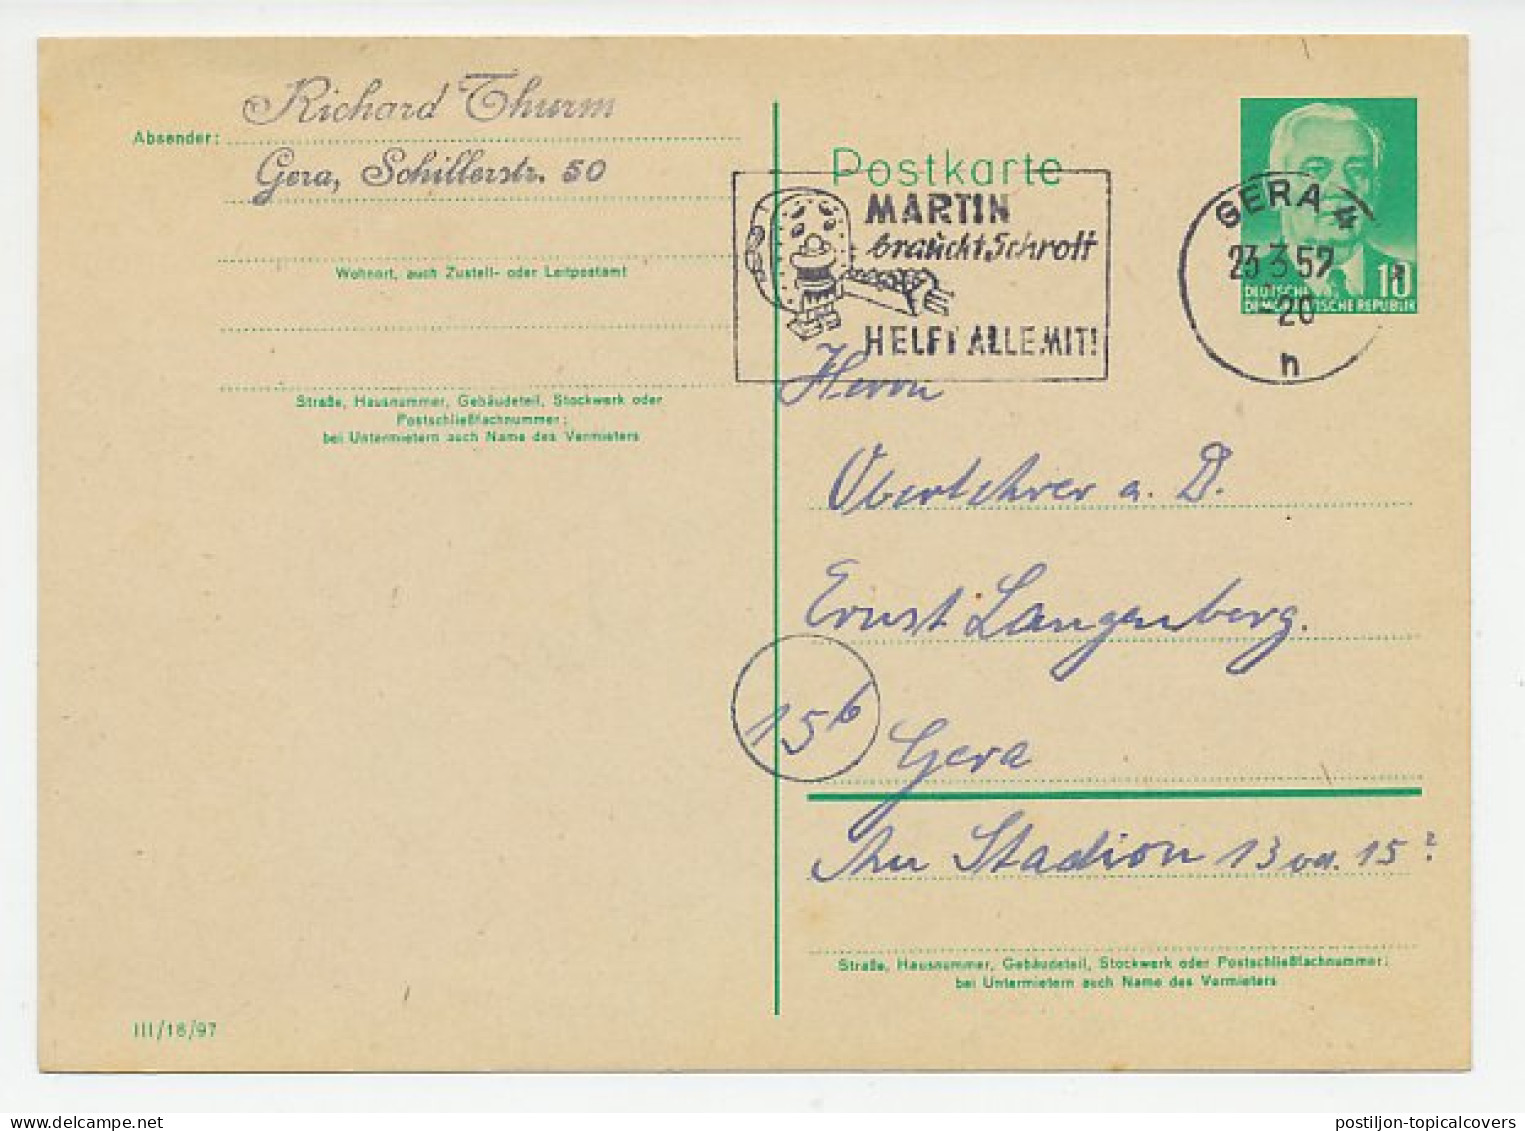 Richard Thurm
Absender:
Gera, Schillerstr. 50
Wohnort, auch Zustell- oder Leitpostamt
Straße, Hausnummer, Gebäudeteil, Stockwerk oder
Postschließfachnummer;
bei Untermietern auch Name des Vermieters
III/18/97
Postkarte
MARTIN
braucht Schrott
HELFT ALLE MIT!
GERA 4
23.3.57
-20
h
10
DEUTSCHE
DEMOKRATISCHE REPUBLIK
Herrn
Oberlehrer a. D.
Ernst Langenberg.
15b
Gera
Stadion 13 od. 15?
Straße, Hausnummer, Gebäudeteil, Stockwerk oder Postschließfachnummer;
bei Untermietern auch Name des Vermieters
postiljon-topicalcovers